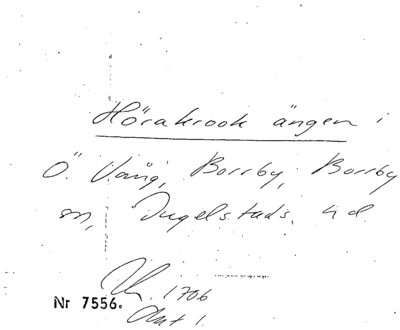 Hörakrook ängen i
Ö. Vång, Borrby, Borrby
sn, Ingelstads hd
1706
Nr 7556.
Akt 1.